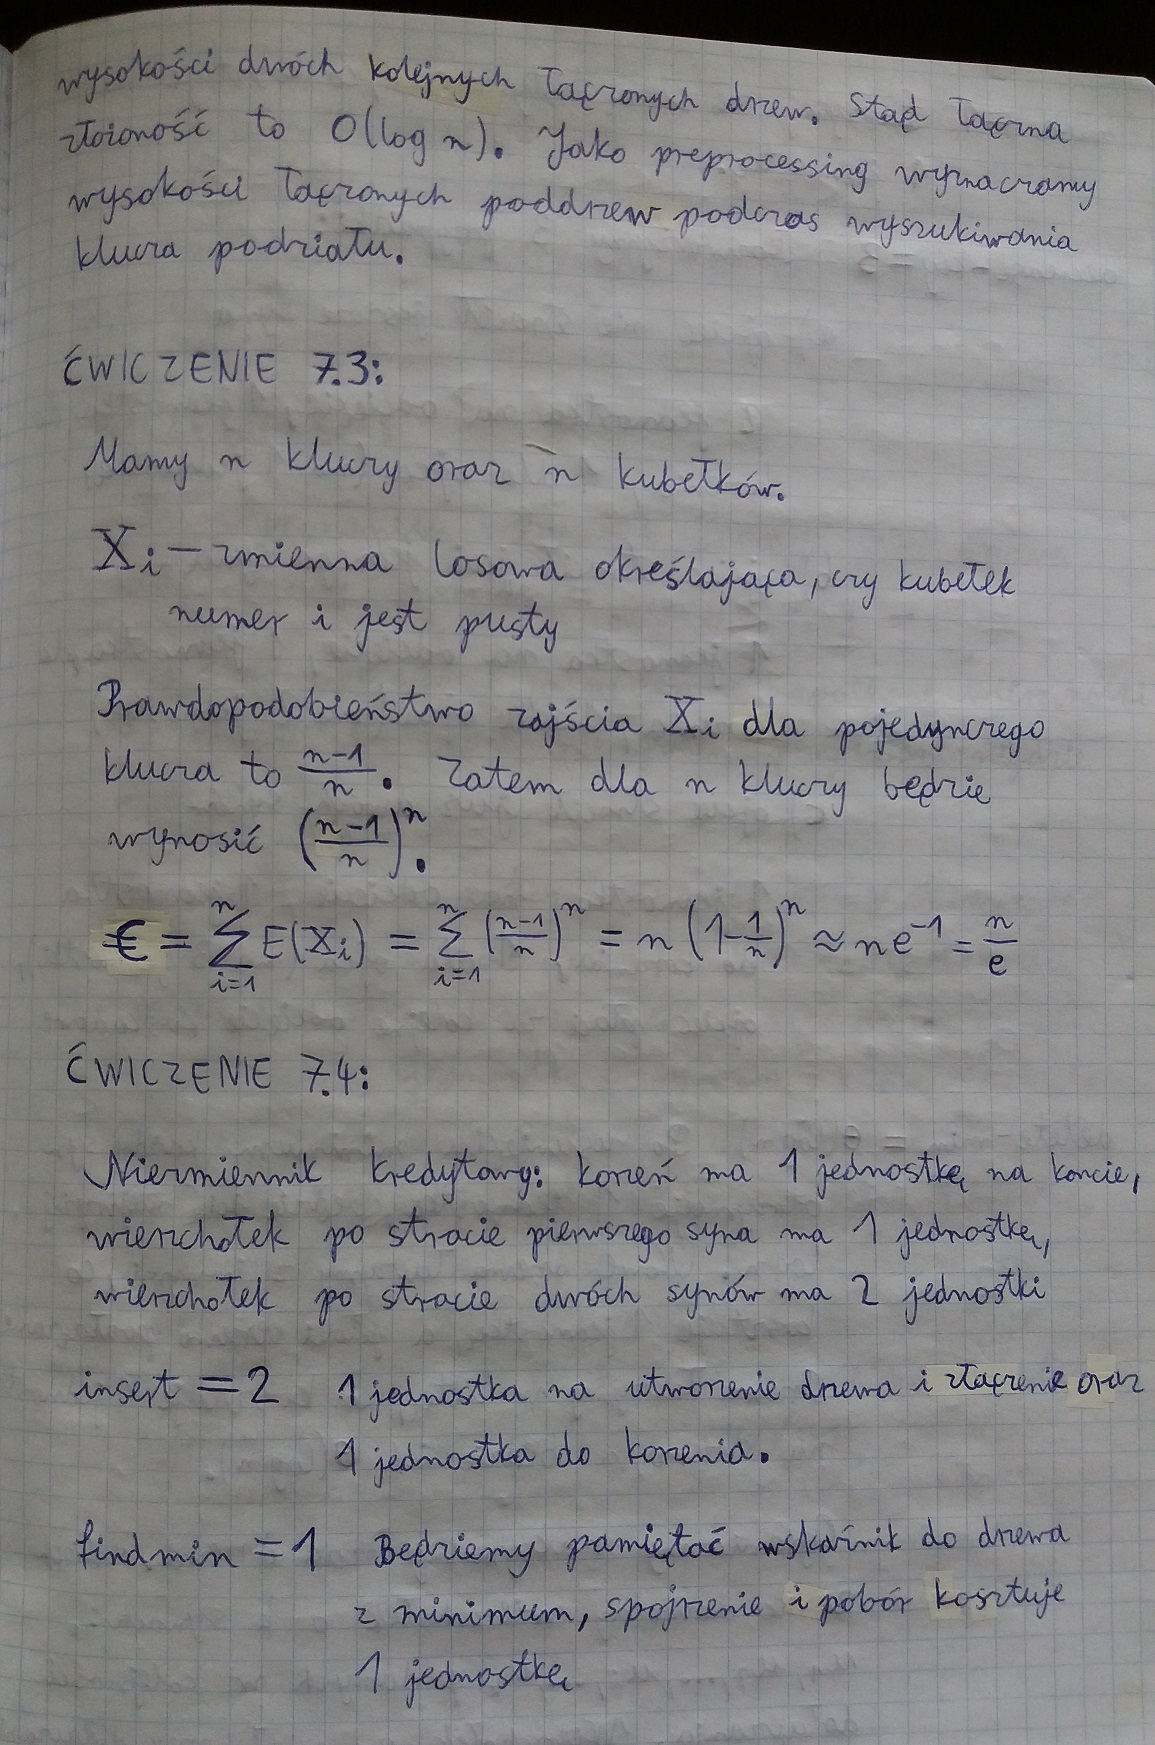 wysokości dwóch kolejnych łączonych drzew. Stąd łączna
złożoność to O(log n). Jako preprocessing wyznaczamy
wysokości łączonych poddrzew podczas wyszukiwania
klucza podziału.
ĆWICZENIE 7.3:
Mamy n kluczy oraz n kubełków.
X_i – zmienna losowa określająca, czy kubełek
numer i jest pusty
Prawdopodobieństwo zajścia X_i dla pojedynczego
klucza to \frac{n-1}{n}. Zatem dla n kluczy będzie
wynosić (\frac{n-1}{n})^n.
€ = \sum_{i=1}^{n} E(X_i) = \sum_{i=1}^{n} (\frac{n-1}{n})^n = n (1-\frac{1}{n})^n ≈ ne^{-1} = \frac{n}{e}
ĆWICZENIE 7.4:
Niezmiennik kredytowy: korzeń ma 1 jednostkę na koncie,
wierzchołek po stracie pierwszego syna ma 1 jednostkę,
wierzchołek po stracie dwóch synów ma 2 jednostki
insert = 2 1 jednostka na utworzenie drzewa i złączenie oraz
1 jednostka do korzenia.
findmin = 1 Będziemy pamiętać wskaźnik do drzewa
z minimum, spojrzenie i pobór kosztuje
1 jednostkę